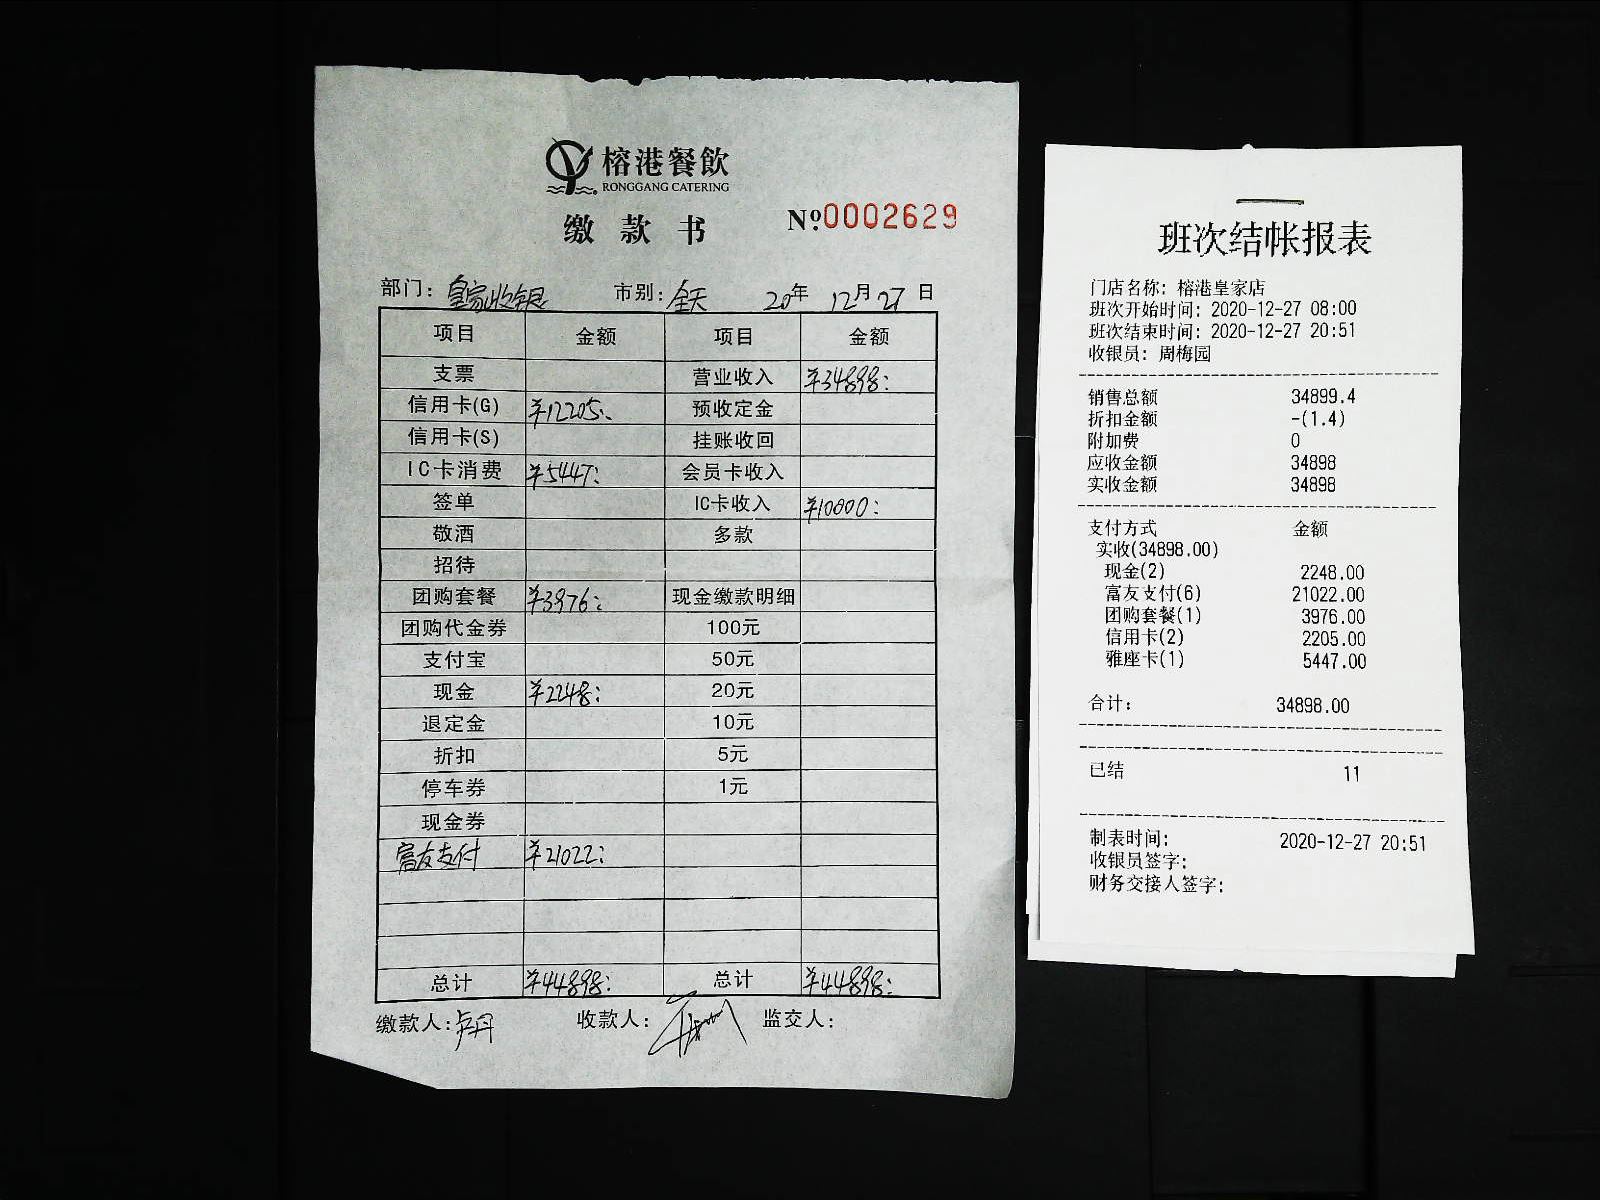 榕港餐飲
RONGGANG CATERING
缴款书 №0002629
部门：皇家收银 市别：全天 20年12月27日
项目 金额 项目 金额
支票 营业收入 ¥34898:
信用卡(G) ¥12205: 预收定金
信用卡(S) 挂账收回
IC卡消费 ¥5447: 会员卡收入
签单 IC卡收入 ¥10000:
敬酒 多款
招待
团购套餐 ¥3976: 现金缴款明细
团购代金券 100元
支付宝 50元
现金 ¥2248: 20元
退定金 10元
折扣 5元
停车券 1元
现金券
富友支付 ¥21022:
总计 ¥44898: 总计 ¥44898:
缴款人：卢丹 收款人： 监交人：
班次结帐报表
门店名称: 榕港皇家店
班次开始时间: 2020-12-27 08:00
班次结束时间: 2020-12-27 20:51
收银员: 周梅园
销售总额 34899.4
折扣金额 -(1.4)
附加费 0
应收金额 34898
实收金额 34898
支付方式 金额
实收(34898.00)
现金(2) 2248.00
富友支付(6) 21022.00
团购套餐(1) 3976.00
信用卡(2) 2205.00
雅座卡(1) 5447.00
合计: 34898.00
已结 11
制表时间: 2020-12-27 20:51
收银员签字:
财务交接人签字: